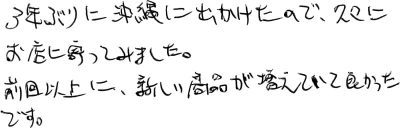 3年ぶりに沖縄に出かけたので、久々に
お店に寄ってみました。
前回以上に、新しい商品が増えていて良かった
です。